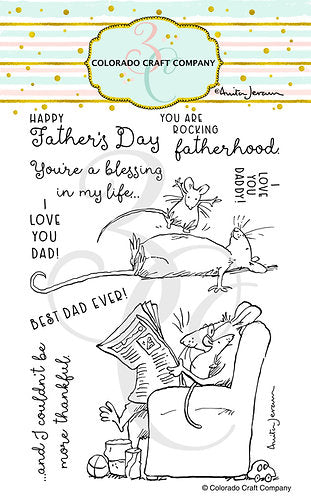 COLORADO CRAFT COMPANY
©Anita Jeram
HAPPY
Father's Day
YOU ARE
ROCKING
fatherhood.
You're a blessing
in my life...
I
LOVE
YOU
DADDY!
I
LOVE
YOU
DAD!
BEST DAD EVER!
...and I couldn't be
more thankful.
Anita Jeram
© Colorado Craft Company